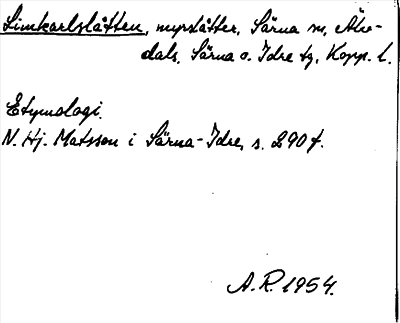 Limkarlslåtten, myrslåtter, Särna sn, Älv-
dals, Särna o. Idre tg, Kopp. l.
Etymologi.
N. Hj. Matsson i Särna-Idre, s. 290 f.
A.R. 1954.